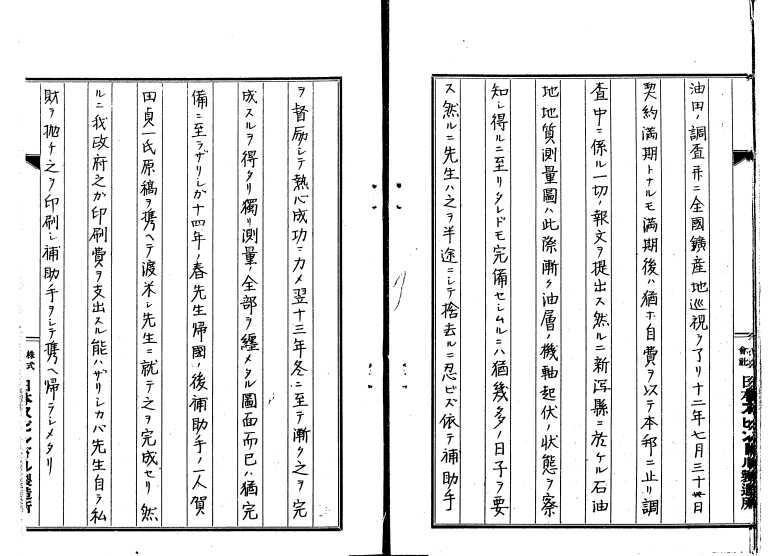 油田ノ調査幷ニ全國鑛産地巡視ヲ了リ十二年七月三十日
契約滿期トナルモ滿期後ハ猶ホ自費ヲ以テ本邦ニ止リ調
査中ニ係ル一切ノ報文ヲ提出ス然ルニ新泻縣ニ於ケル石油
地地質測量圖ハ此際漸ク油層ノ機軸起伏ノ狀態ヲ察
知シ得ルニ至リタレドモ完備セシムルニハ猶幾多ノ日子ヲ要
ス然ルニ先生ハ之ヲ半途ニシテ捨去ルニ忍ビズ依テ補助手
ヲ督励シテ熱心成功ニカメ翌十三年冬ニ至テ漸ク之ヲ完
成スルヲ得タリ獨リ測量ノ全部ヲ纏メタル圖面而已ハ猶完
備ニ至ラザリシカ十四年ノ春先生帰國ノ後補助手ノ一人賀
田貞一氏原稿ヲ携ヘテ渡米シ先生ニ就テ之ヲ完成セリ然
ルニ我政府之カ印刷費ヲ支出スル能ハザリシカバ先生自ラ私
財ヲ抛チ之ヲ印刷シ補助手ヲシテ携ヘ帰ラシメタリ
株式
日本スピンドル製造所